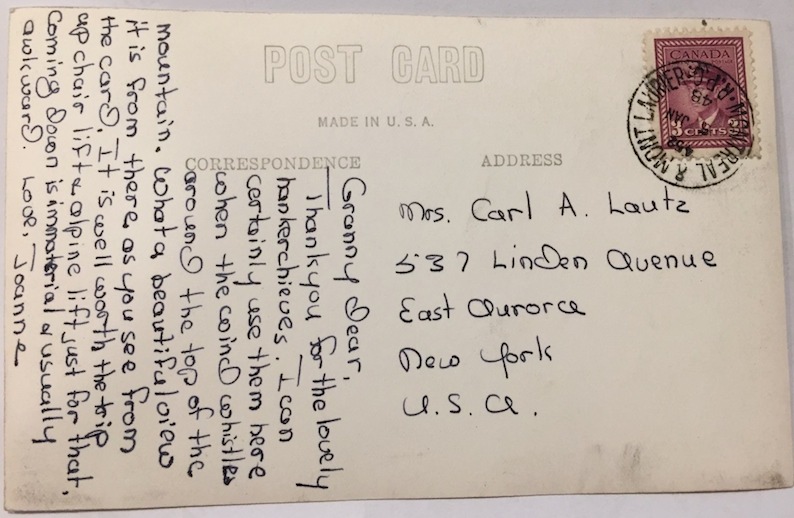 POST CARD
MADE IN U.S.A.
CORRESPONDENCE
ADDRESS
CANADA
3 CENTS
MONTREAL & MONT LAURIER R.P.O.
JAN
5
48
Granny Dear,
Thank you for the lovely
hankerchieves. I can
certainly use them here
when the wind whistles
around the top of the
mountain. What a beautiful view
it is from there as you see from
the card. It is well worth the trip
up chair lift & alpine lift just for that.
Coming down is immaterial & usually
awkward. Love, Joanne
Mrs. Carl A. Lautz
537 Linden Avenue
East Aurora
New York
U.S.A.